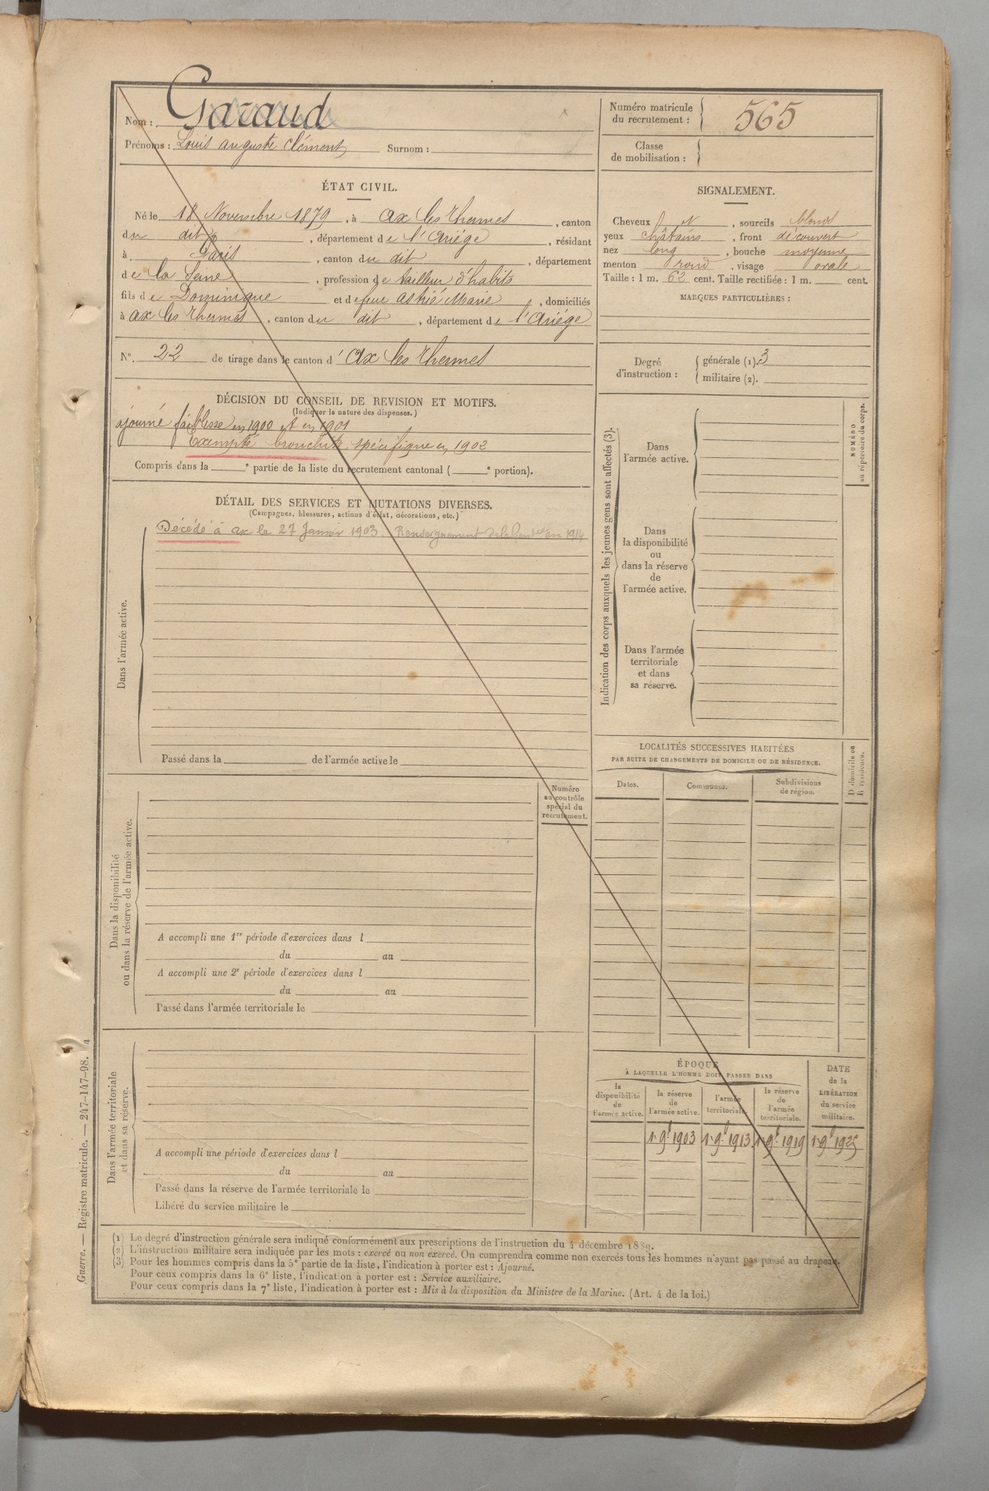 Nom : Garaud
Prénoms : Louis auguste Clément Surnom :
Numéro matricule du recrutement : 565
Classe de mobilisation :
ÉTAT CIVIL.
Né le 18 Novembre 1879, à Ax les Thermes, canton
du dit, département de l'Ariège, résidant
à Paris, canton du dit, département
de la Seine, profession de tailleur d'habits
fils de Dominique et de feue Marie, domiciliés
à Ax les Thermes, canton du dit, département de l'Ariége
N° 22 de tirage dans le canton d'Ax les Thermes
SIGNALEMENT.
Cheveux bl N, sourcils blond
yeux châtains, front découvert
nez long, bouche moyenne
menton rond, visage ovale
Taille : 1 m. 62 cent. Taille rectifiée : 1 m. cent.
MARQUES PARTICULIÈRES :
Degré d'instruction : générale (1). 3
militaire (2).
DÉCISION DU CONSEIL DE REVISION ET MOTIFS.
(Indiquer la nature des dispenses.)
ajourné faiblesse en 1900 et en 1901
Exempté bronchite spécifique en 1902
Compris dans la e partie de la liste du recrutement cantonal ( e portion).
DÉTAIL DES SERVICES ET MUTATIONS DIVERSES.
(Campagnes, blessures, actions d'éclat, décorations, etc.)
Dans l'armée active.
Décédé à Ax le 27 Janvier 1903. Renseignement de la en 1914
Passé dans la de l'armée active le
Numéro au contrôle spécial du recrutement.
Dans la disponibilité
ou dans la réserve de l'armée active.
A accompli une 1re période d'exercices dans l
du au
A accompli une 2e période d'exercices dans l
du au
Passé dans l'armée territoriale le
Dans l'armée territoriale
et dans sa réserve.
A accompli une période d'exercices dans l
du au
Passé dans la réserve de l'armée territoriale le
Libéré du service militaire le
Indication des corps auxquels les jeunes gens sont affectés (3).
Dans
l'armée active.
Dans
la disponibilité
ou
dans la réserve
de
l'armée active.
Dans l'armée
territoriale
et dans
sa réserve.
NUMÉRO
au répertoire du corps.
LOCALITÉS SUCCESSIVES HABITÉES
PAR SUITE DE CHANGEMENTS DE DOMICILE OU DE RÉSIDENCE.
Dates. Communes. Subdivisions de région. D. domicile ou R. résidence.
ÉPOQUE
À LAQUELLE L'HOMME DOIT PASSER DANS
DATE de la LIBÉRATION du service militaire.
la disponibilité de l'armée active. la réserve de l'armée active. l'armée territoriale. la réserve de l'armée territoriale.
1er 9bre 1903 1er 9bre 1913 1er 9bre 1919 1er 9bre 1925
(1) Le degré d'instruction générale sera indiqué conformément aux prescriptions de l'instruction du 4 décembre 1889.
(2) L'instruction militaire sera indiquée par les mots : exercé ou non exercé. On comprendra comme non exercés tous les hommes n'ayant pas passé au drapeau.
(3) Pour les hommes compris dans la 5e partie de la liste, l'indication à porter est : Ajourné.
Pour ceux compris dans la 6e liste, l'indication à porter est : Service auxiliaire.
Pour ceux compris dans la 7e liste, l'indication à porter est : Mis à la disposition du Ministre de la Marine. (Art. 4 de la loi.)
Guerre. — Registre matricule. — 247-147-98.